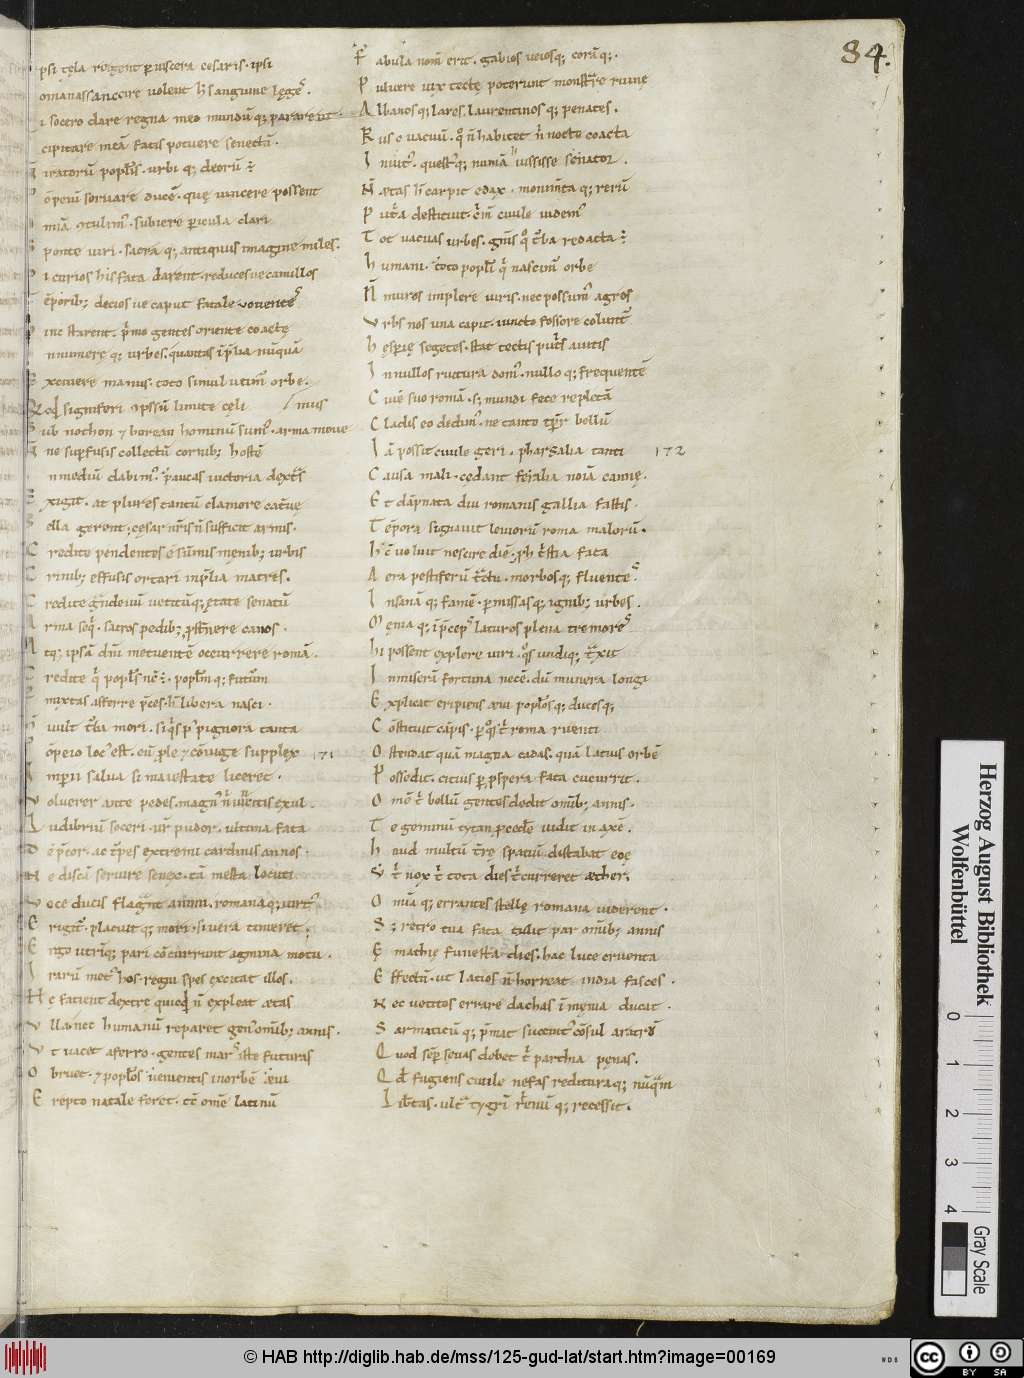 psi tęla regent ꝑ viscera cesaris. ipsi
omanas sancire volent h̄ sanguine lęgeˢ.
i socero dare regna meo mundū q; pararent.
cipitare meā fatis potuere senectā.
iratorū popłis. urbi q; deorū ÷
ōpeiū servare ducē. quę vincere possent
mīa ꝯtulimᵒ. subiere ꝑicula clari
ponte viri. sacra q; antiquus imagine miles.
i curios his fata darent. reduces ve camillos
ēporib; decios ve caput fatale voventeˢ
inc starent. p̄mo gentes oriente coactę
nnumerę q; urbes. quantas ī p̄lia nūquā
xcivere manus. toto simul utimᵒ orbe.
ꝗcꝗd signiferi ꝯpssū limite cęli / mus
ub nothon ⁊ borean hominū sumᵒ. arma move
ne suꝑfusis collectū cornib; hostē
n mediū dabimᵒ. paucas victoria dextˢ
xigit. at plures tantū clamore catvę
ella gerent; cęsar nr̄is n̄ sufficit armis.
C redite pendentes ē sūmis męnib; urbis
C rinib; effusis ortari in p̄lia matres.
C redite gn̄devū vetitūq; ętate senatū
A rma seq̄. sacros pedib; ꝓstn̄ere canos.
A tq; ipsā dn̄i metuentē occurrere romā.
C redite q̄ popłs nc̄ ÷. popłm q; futurū
mixtas afferre p̄ces. h̄ libera nasci.
vult t̄ba mori. siq̄s pᵗ pignora tanta
ōpeio locᵒ est. cū ꝓle ⁊ cōiuge supplex 171
I mperii salva si maiestate liceret.
V olverer ante pedes. magnᵒ n̄ vincitis exul.
L udibriū soceri. vr̄ pudor. ultima fata
D ep̄cor. ac t̄pes extremi cardinis annos.
N e discā servire senex. tā mesta locuti
V oce ducis flagr̄nt animi. romanaq; virtᵒ
E rigitᵒ. placuit q; mori. si vera timeret.
E rgo utrīq; pari cōcurrunt agmina motu.
I rarū metᵒ hos. regni spes excitat illos.
H ę facient dextrę quicꝗd n̄ expleat ætas
V lla nec humanū reparet genᵒ omīb; annis.
V t vacet a ferro. gentes mars iste futuras
O bruet. ⁊ popłos venientis in orbē ævi
E repto natale feret. tc̄ omē latinū
F abula nom̄ erit. gabios veiosq; corāq;.
P ulvere vix tectę poterunt monstrare ruinę
A lbanos q; lares. laurentinos q; penates.
R us ⁊ vacuū. qᵒ n̄ habitet n̄ nocte coacta
I nvitᵒ. questᵒq; numā iussisse senator.
N̄ ætas h̄ carpit edax. monim̄ta q; rerū
P ut̄a destituit. c̄m̄ civile videmᵒ
T ot vacuas urbes. gn̄is qᵒ t̄ba redacta ÷
H umani. toto popłi q̄ nascimᵒ orbe
N̄ muros implere viris. nec possumᵒ agros
V rbs nos una capit. vincto fossore coluntᵒ
H ęsꝑię segetes. stat tectis put̄s avitis
I n nullos ruitura domᵒ. nullo q; frequentē
C ivē suo romā. s; mundi fece repletā
C ladis eo dedimᵒ. ne tanto tp̄r bellū
I ā possit civile geri. pharsalia tanti 172
C ausa mali. cędant feralia noīa cannę.
E t dāpnata diu romanis gallia fastis.
T ēpora signavit leviorū roma malorū.
H c̄ voluit nescire diē. ꝓh t̄stia fata
A era pestiferū tr̄ctu. morbosq; fluenteˢ
I nsanā q; famē. ꝑmissasq; ignib; urbes.
M ęnia q; ī p̄cepˢ laturos plena tremoreˢ
Hi possent explere viri. qᵒs undiq; tr̄xit
I n miserū fortuna necē. dū munera longi
E xplicat eripiens ævi popłosq; ducesq;
C ōstituit cāpis. ꝑ qᵒs t̄ roma ruenti
O stendat quā magna cadas. quā latius orbē
P ossedit. citius ꝑ ꝓspera fata cucurrit.
O mē t̄ bellū gentes dedit omīb; annis.
T e geminū tytan ꝓcedere vidit in axē.
H aud multū terrę spatiū distabat eoę
Vᵗ t̄ nox t̄ tota dies t̄ curreret æther.
O mīa q; errantes stellę romana viderent.
S; retro tua fata tulit par omīb; annis
Ę mathię funesta dies. hac luce cruenta
E ffectū. ut latios n̄ horreat india fasces.
N ec vetitos errare dachas ī męnia ducat.
S armaticū q; p̄mat succinctᵒ cōsul aratrū
Q uod semꝑ sevas debet t̄ parthia pęnas.
Q d̄ fugiens civile nefas redituraq; nūquā
L ib̄tas. ultˢ tygrī renū q; recessit.
84.
Herzog August Bibliothek
Wolfenbüttel
0 1 2 3 4
Gray Scale
© HAB http://diglib.hab.de/mss/125-gud-lat/start.htm?image=00169
WDB
cc BY SA